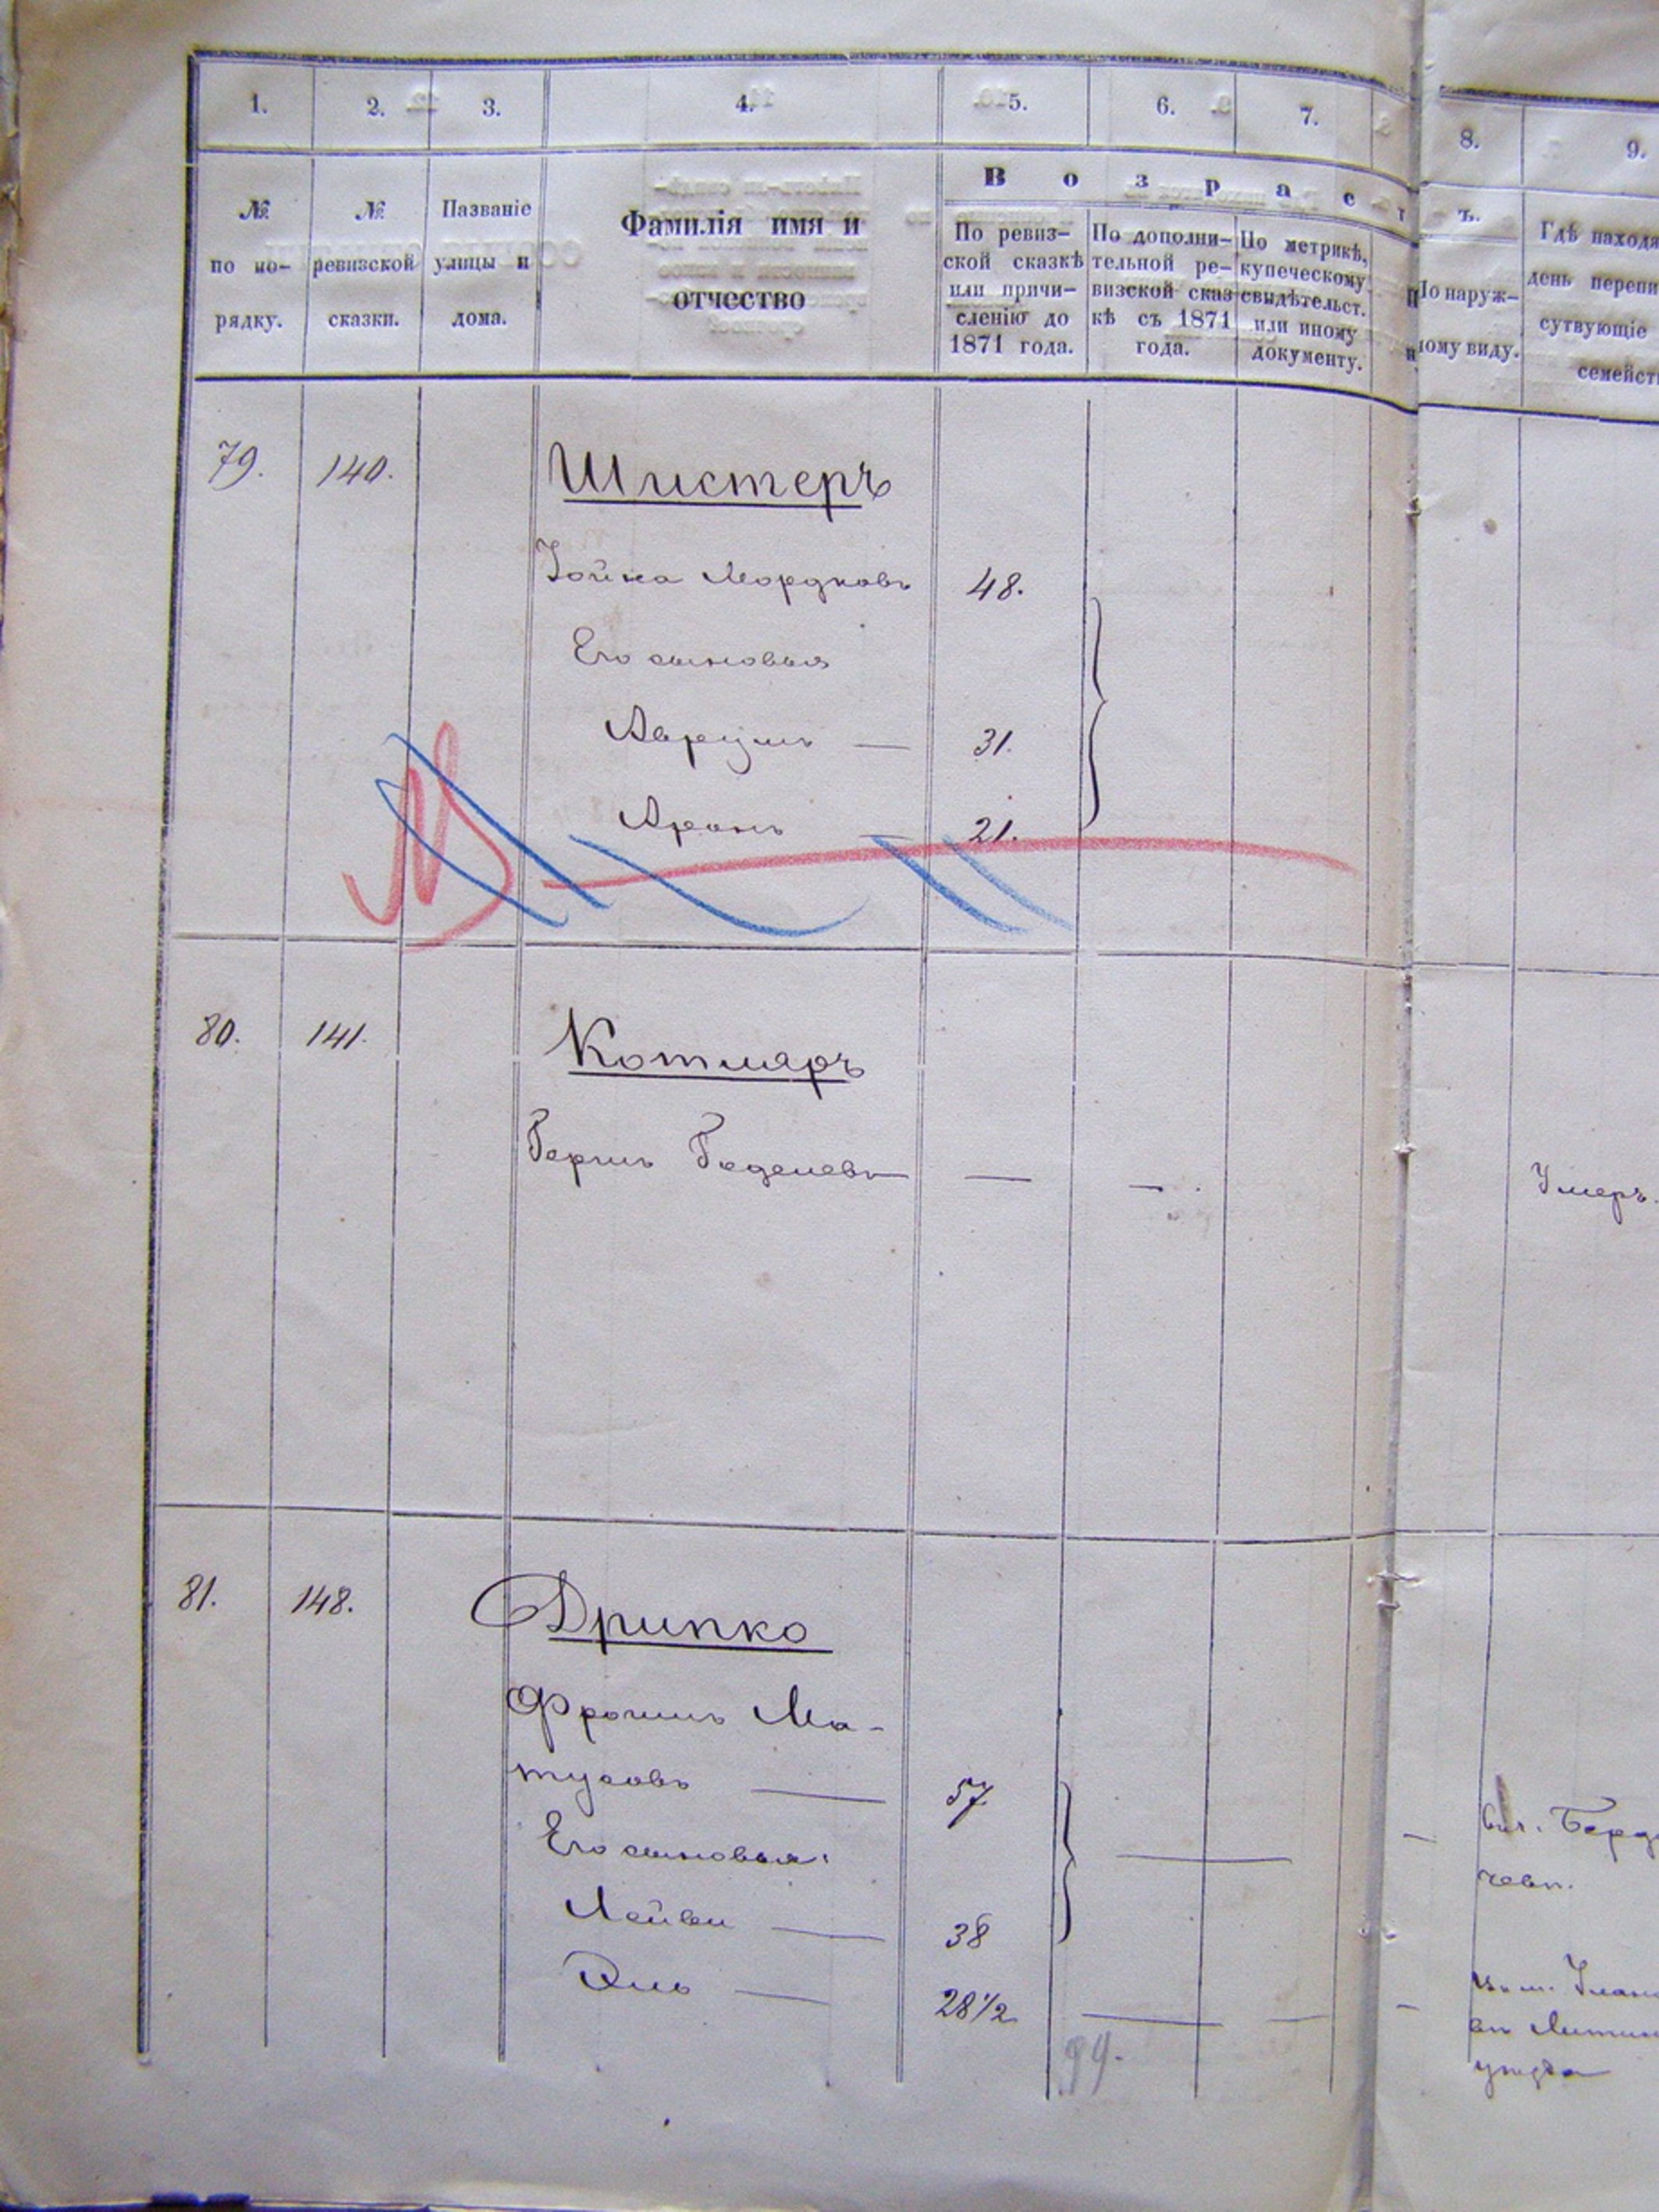 1. 2. 3. 4. 5. 6. 7. 8. 9.
В о з р а с т ъ.
№ по по-рядку.
№ ревизской сказки.
Названіе улицы и дома.
Фамилія имя и отчество
По ревиз-
ской сказкѣ
или причи-
сленію до
1871 года.
По дополни-
тельной ре-
визской сказ
кѣ съ 1871
года.
По метрикѣ,
купеческому
свидѣтельст.
или иному
документу.
По наруж-
ному виду.
Гдѣ находя
день перепи
сутвующіе
семейст
79. 140. Шистеръ
Іойна Мордковъ 48.
Его сыновья
Аврумъ — 31.
Аронъ — 21.
80. 141. Котляръ
Умеръ.
81. 148. Дрипко
Фроимъ Ма-
тусовъ — 57
Его сыновья:
Лейви — 38
Эль — 28 1/2
Берд
чевѣ.
уѣзда
94.